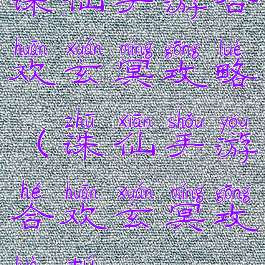 诛仙手游合
huān xuán míng gōng lüè
欢玄冥攻略
zhū xiān shǒu yóu
（诛仙手游
hé huān xuán míng gōng
合欢玄冥攻